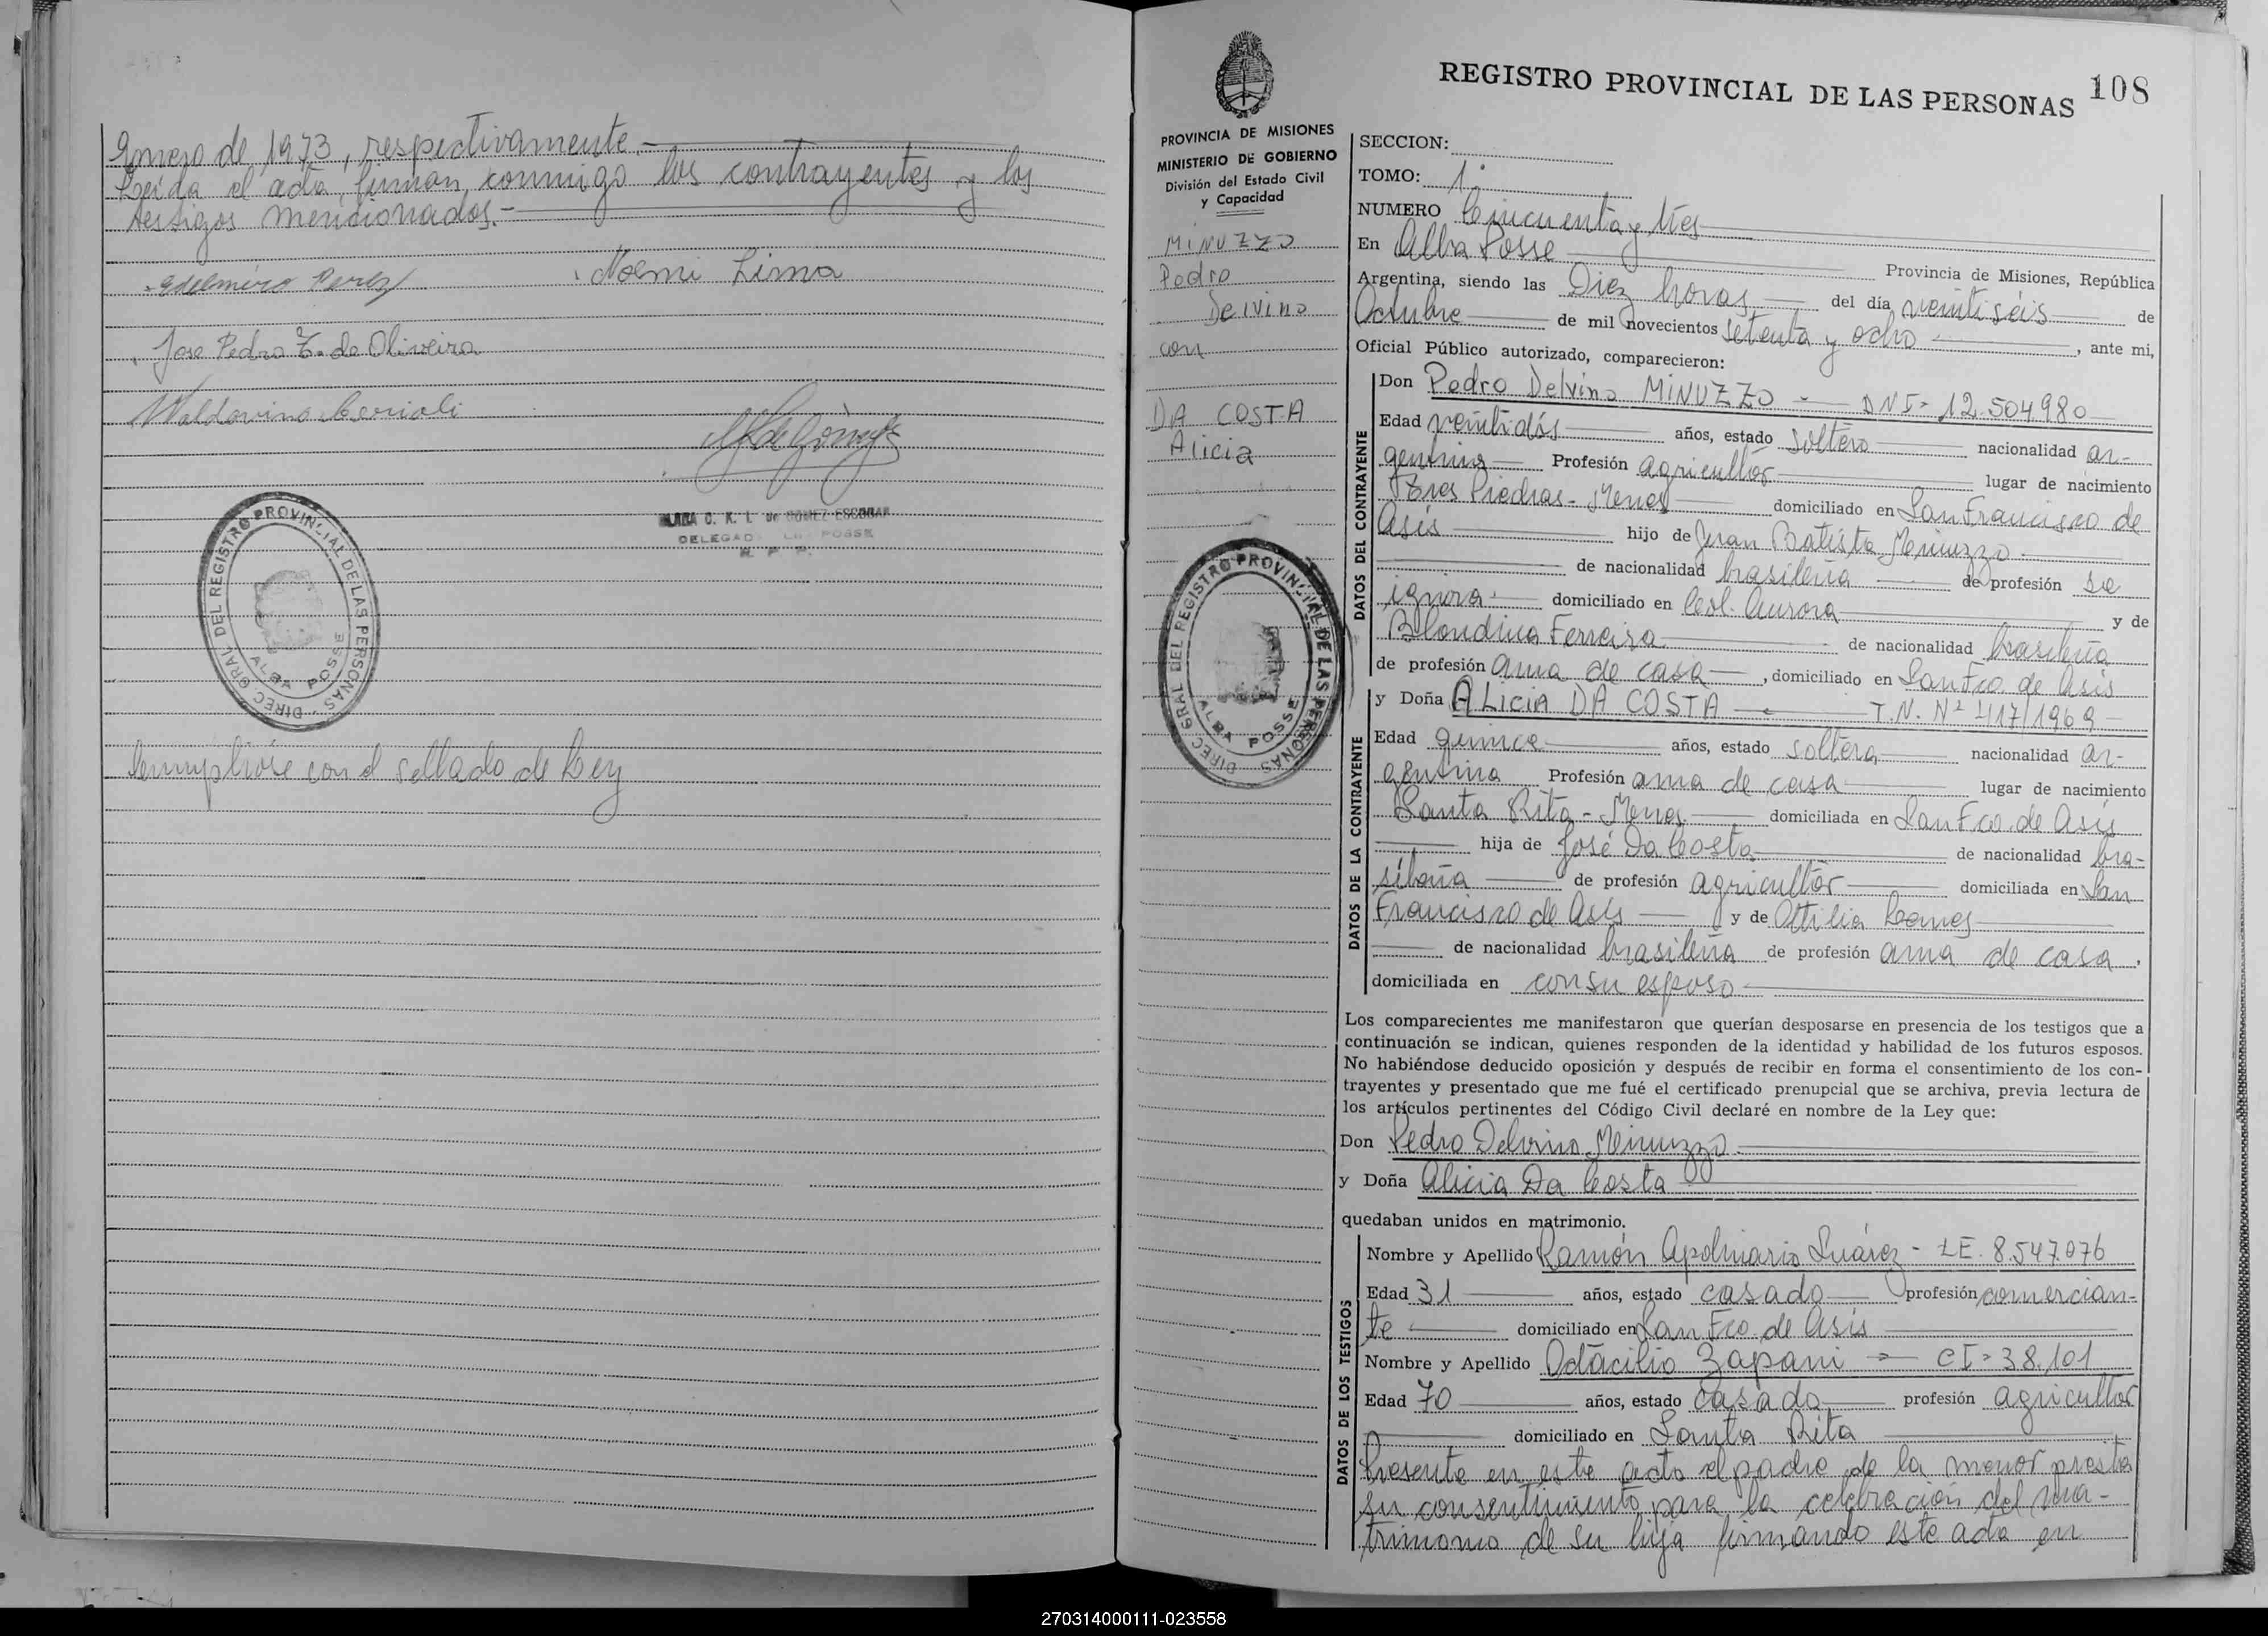 Enero de 1973, respectivamente.-
Leida el acta, firman conmigo los contrayentes y los
testigos mencionados.-
Edelmiro Perez
Noemi Lima
Jose Pedro T. de Oliveira
Waldovino
CLARA C. K. L. de GOMEZ ESCOBAR
DELEGAD POSSE
R. P. P.
DIREC GRAL DEL REGISTRO PROVINCIAL DE LAS PERSONAS
ALBA POSSE
Cumplióse con el sellado de Ley
REGISTRO PROVINCIAL DE LAS PERSONAS 108
PROVINCIA DE MISIONES
MINISTERIO DE GOBIERNO
División del Estado Civil
y Capacidad
MINUZZO
Pedro
Delvino
con
DA COSTA
Alicia
DIREC GRAL DEL REGISTRO PROVINCIAL DE LAS PERSONAS
ALBA POSSE
SECCION:
TOMO: 1º
NUMERO Cincuenta y tres
En Alba Posse Provincia de Misiones, República
Argentina, siendo las Diez horas del día veintiséis de
Octubre de mil novecientos setenta y ocho, ante mi,
Oficial Público autorizado, comparecieron:
DATOS DEL CONTRAYENTE
Don Pedro Delvino MINUZZO - DNI- 12.504.980
Edad veintidós años, estado soltero nacionalidad ar-
gentina Profesión agricultor lugar de nacimiento
Tres Piedras - Mnes domiciliado en San Francisco de
Asís hijo de Juan Batista Minuzzo
de nacionalidad brasileña de profesión se
ignora domiciliado en Col. Aurora y de
Blondina Ferreira de nacionalidad brasileña
de profesión ama de casa, domiciliado en San Fco. de Asís
DATOS DE LA CONTRAYENTE
y Doña ALICIA DA COSTA T.N. Nº 417/1969
Edad quince años, estado soltera nacionalidad ar-
gentina Profesión ama de casa lugar de nacimiento
Santa Rita - Mnes. domiciliada en San Fco. de Asís
hija de José Da Costa de nacionalidad bra-
sileña de profesión agricultor domiciliada en San
Francisco de Asís y de Ottilia Lemes
de nacionalidad brasileña de profesión ama de casa,
domiciliada en con su esposo
Los comparecientes me manifestaron que querían desposarse en presencia de los testigos que a
continuación se indican, quienes responden de la identidad y habilidad de los futuros esposos.
No habiéndose deducido oposición y después de recibir en forma el consentimiento de los con-
trayentes y presentado que me fué el certificado prenupcial que se archiva, previa lectura de
los artículos pertinentes del Código Civil declaré en nombre de la Ley que:
Don Pedro Delvino Minuzzo
y Doña Alicia Da Costa
quedaban unidos en matrimonio.
DATOS DE LOS TESTIGOS
Nombre y Apellido Ramón Apolinario Suárez - LE. 8.547.076
Edad 31 años, estado casado profesión comercian-
te domiciliado en San Fco de Asís
Nombre y Apellido Odacilio Zapani - CI- 38.101
Edad 70 años, estado casado profesión agricultor
domiciliado en Santa Rita
Presente en este acto el padre de la menor presta
su consentimiento para la celebración del ma-
trimonio de su hija firmando este acta en
270314000111-023558